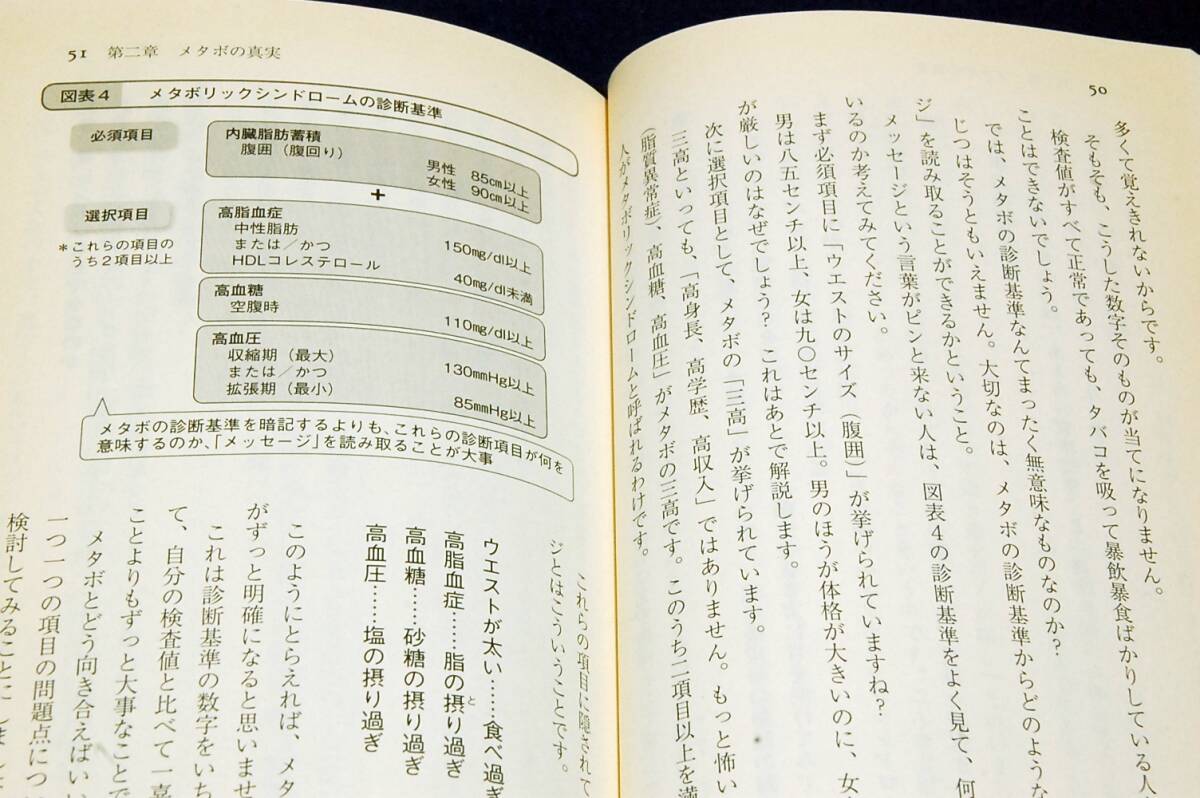 50
多くて覚えきれないからです。
そもそも、こうした数字そのものが当てになりません。
検査値がすべて正常であっても、タバコを吸って暴飲暴食ばかりしている人
ことはできないでしょう。
では、メタボの診断基準なんてまったく無意味なものなのか?
じつはそうともいえません。大切なのは、メタボの診断基準からどのような
ジ」を読み取ることができるかということ。
メッセージという言葉がピンと来ない人は、図表4の診断基準をよく見て、何
いるのか考えてみてください。
まず必須項目に「ウエストのサイズ(腹囲)」が挙げられていますね?
男は八五センチ以上、女は九〇センチ以上。男のほうが体格が大きいのに、女
が厳しいのはなぜでしょう? これはあとで解説します。
次に選択項目として、メタボの「三高」が挙げられています。
三高といっても、「高身長、高学歴、高収入」ではありません。もっと怖い
(脂質異常症)、高血糖、高血圧」がメタボの三高です。このうち二項目以上を満
人がメタボリックシンドロームと呼ばれるわけです。
51 第二章 メタボの真実
図表4 メタボリックシンドロームの診断基準
必須項目
内臓脂肪蓄積
腹囲(腹回り)
男性 85cm以上
女性 90cm以上
+
選択項目
*これらの項目の
うち2項目以上
高脂血症
中性脂肪 150mg/dl以上
または/かつ
HDLコレステロール 40mg/dl未満
高血糖
空腹時 110mg/dl以上
高血圧
収縮期(最大) 130mmHg以上
または/かつ
拡張期(最小) 85mmHg以上
メタボの診断基準を暗記するよりも、これらの診断項目が何を
意味するのか、「メッセージ」を読み取ることが大事
これらの項目に隠されて
ジとはこういうことです。
ウエストが太い……食べ過ぎ
高脂血症……脂の摂り過ぎ
と
高血糖……砂糖の摂り過ぎ
高血圧……塩の摂り過ぎ
このようにとらえれば、メタ
がずっと明確になると思いませ
これは診断基準の数字をいち
て、自分の検査値と比べて一喜
ことよりもずっと大事なことで
メタボとどう向き合えばいい
一つ一つの項目の問題点につ
検討してみることにしまし